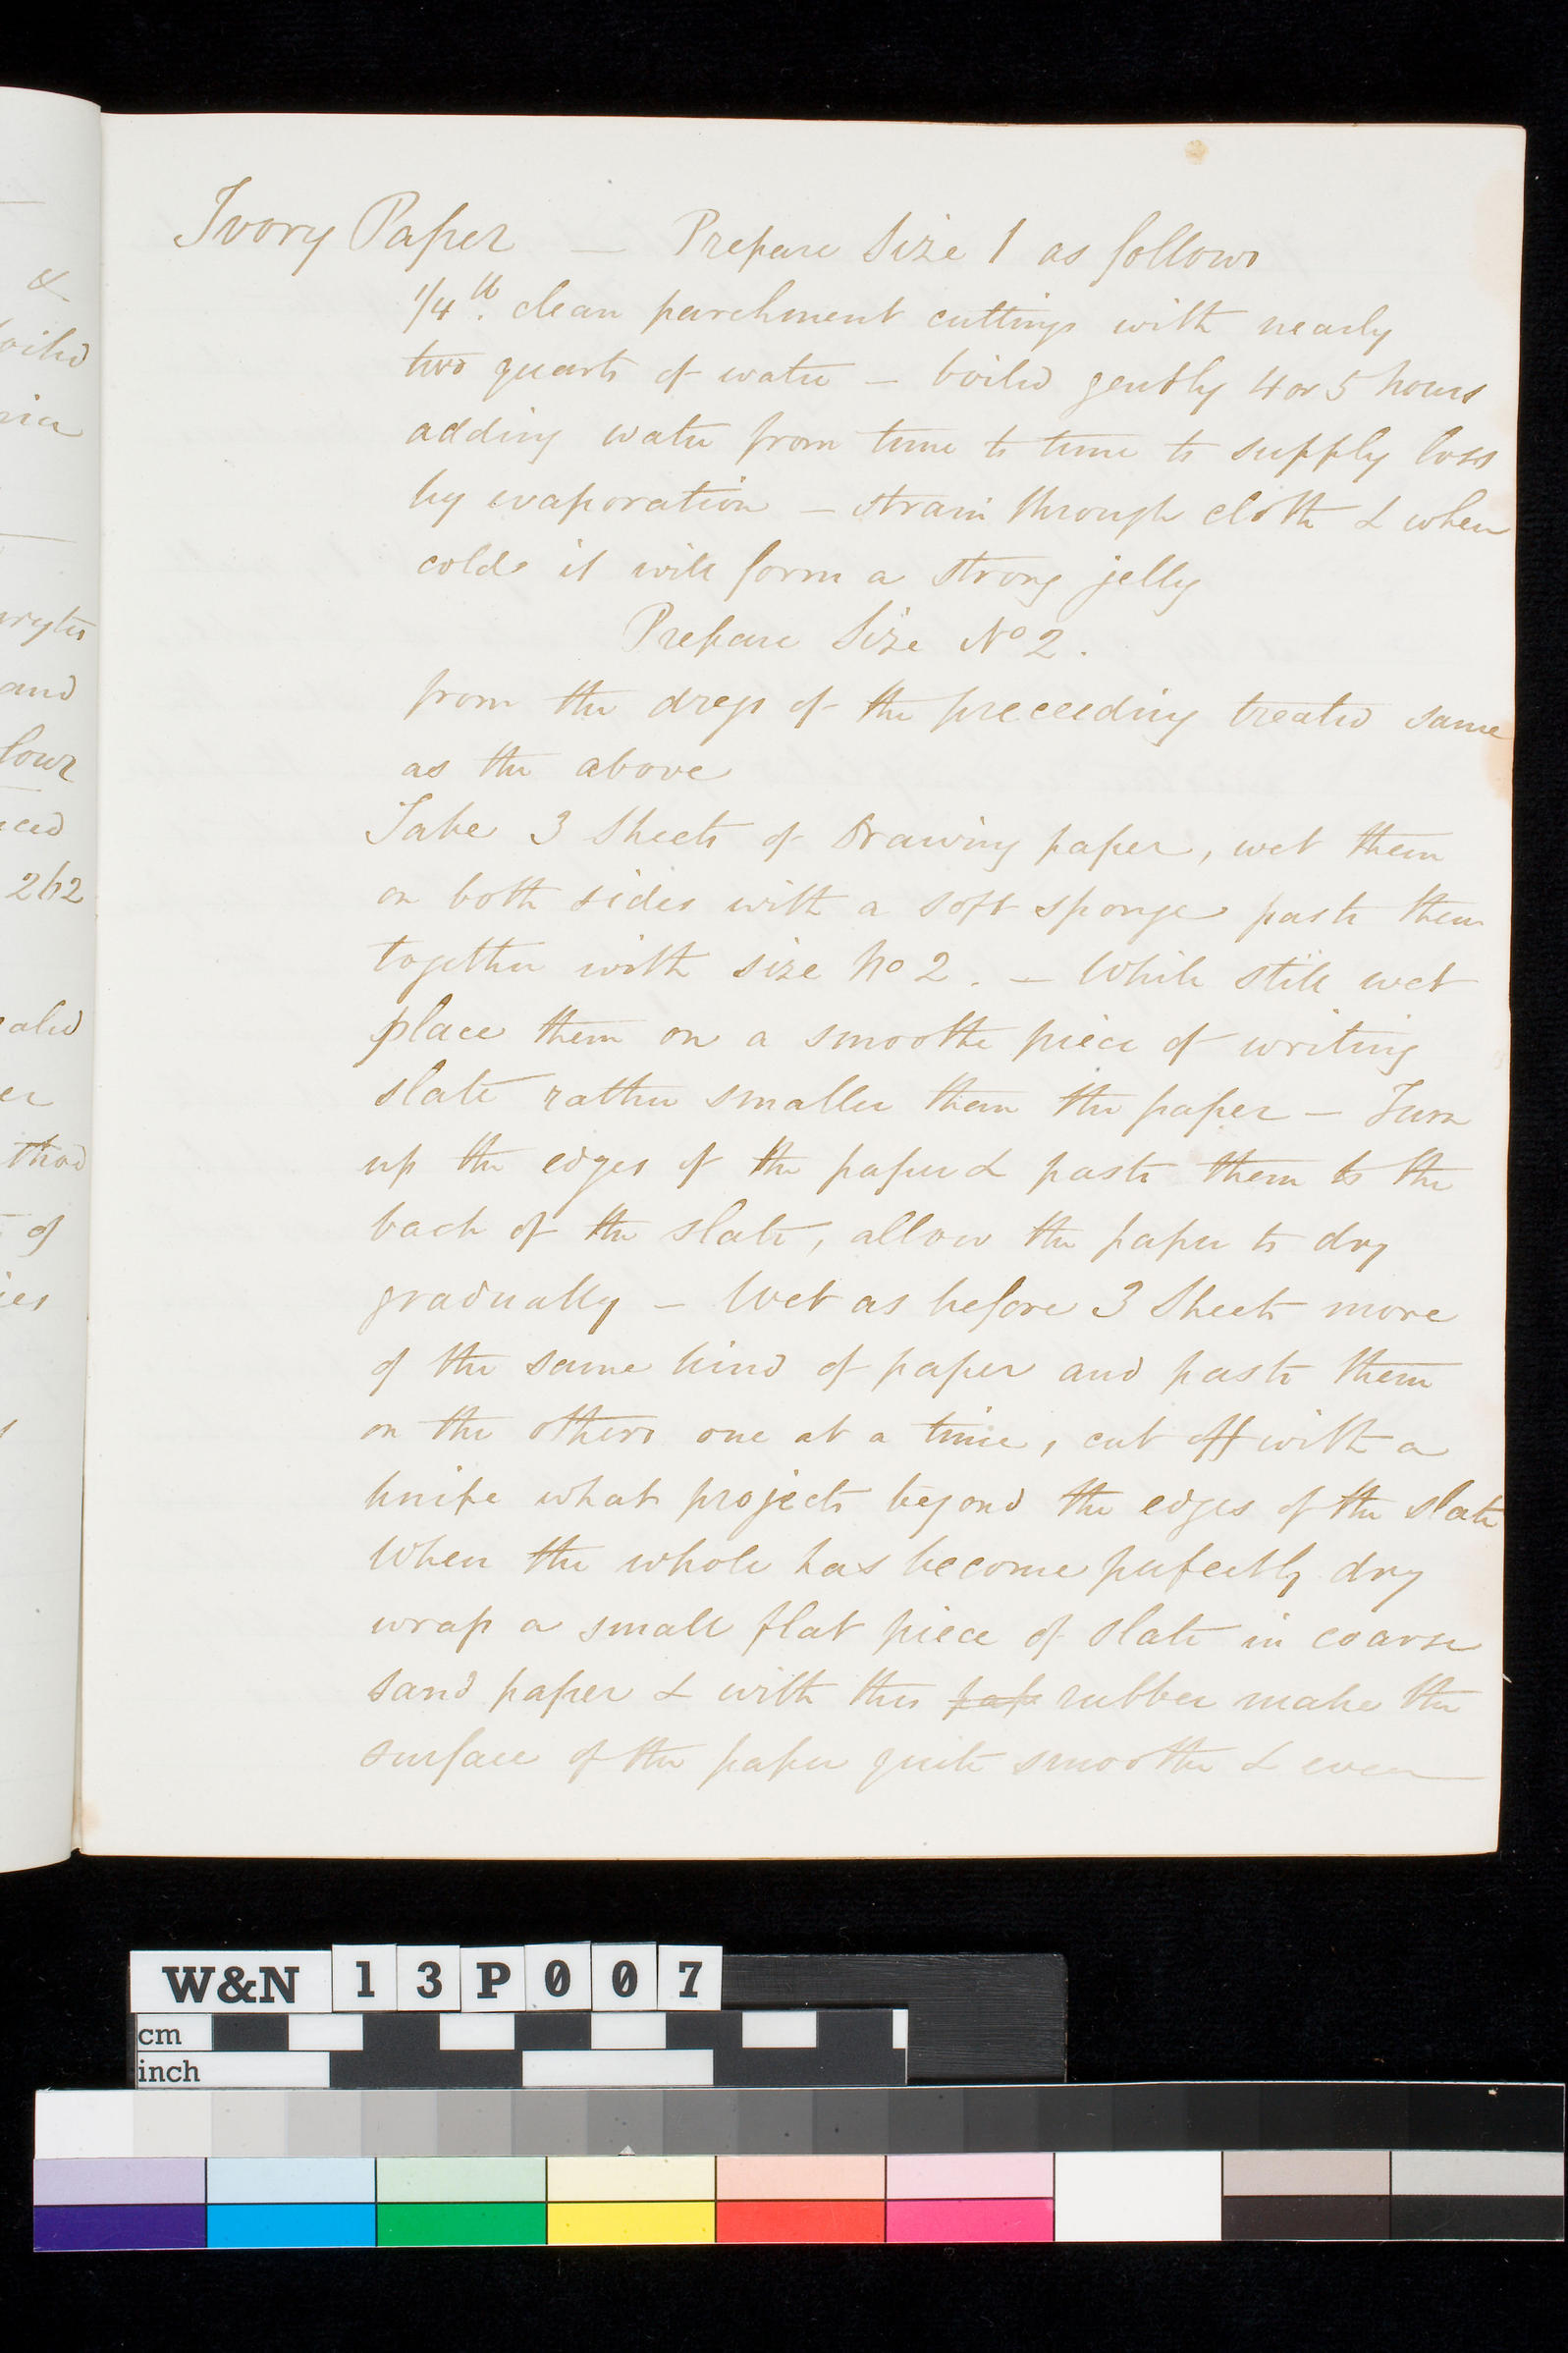 Ivory Paper — Prepare Size 1 as follows
1/4 lb. clean parchment cuttings with nearly
two quarts of water — boiled gently 4 or 5 hours
adding water from time to time to supply loss
by evaporation — strain through cloth & when
cold it will form a strong jelly
Prepare Size No 2.
from the dregs of the preceeding treated same
as the above
Take 3 Sheets of Drawing paper, wet them
on both sides with a soft sponge paste them
together with size No 2. — While still wet
place them on a smoothe piece of writing
slate rather smaller than the paper — Turn
up the edges of the paper & paste them to the
back of the slate, allow the paper to dry
gradually — Wet as before 3 Sheets more
of the same kind of paper and paste them
on the others one at a time, cut off with a
knife what projects beyond the edges of the slate
When the whole has become perfectly dry
wrap a small flat piece of slate in coarse
sand paper & with this pap rubber make the
surface of the paper quite smoothe & even
&
and
262
of
W&N 13P007
cm
inch